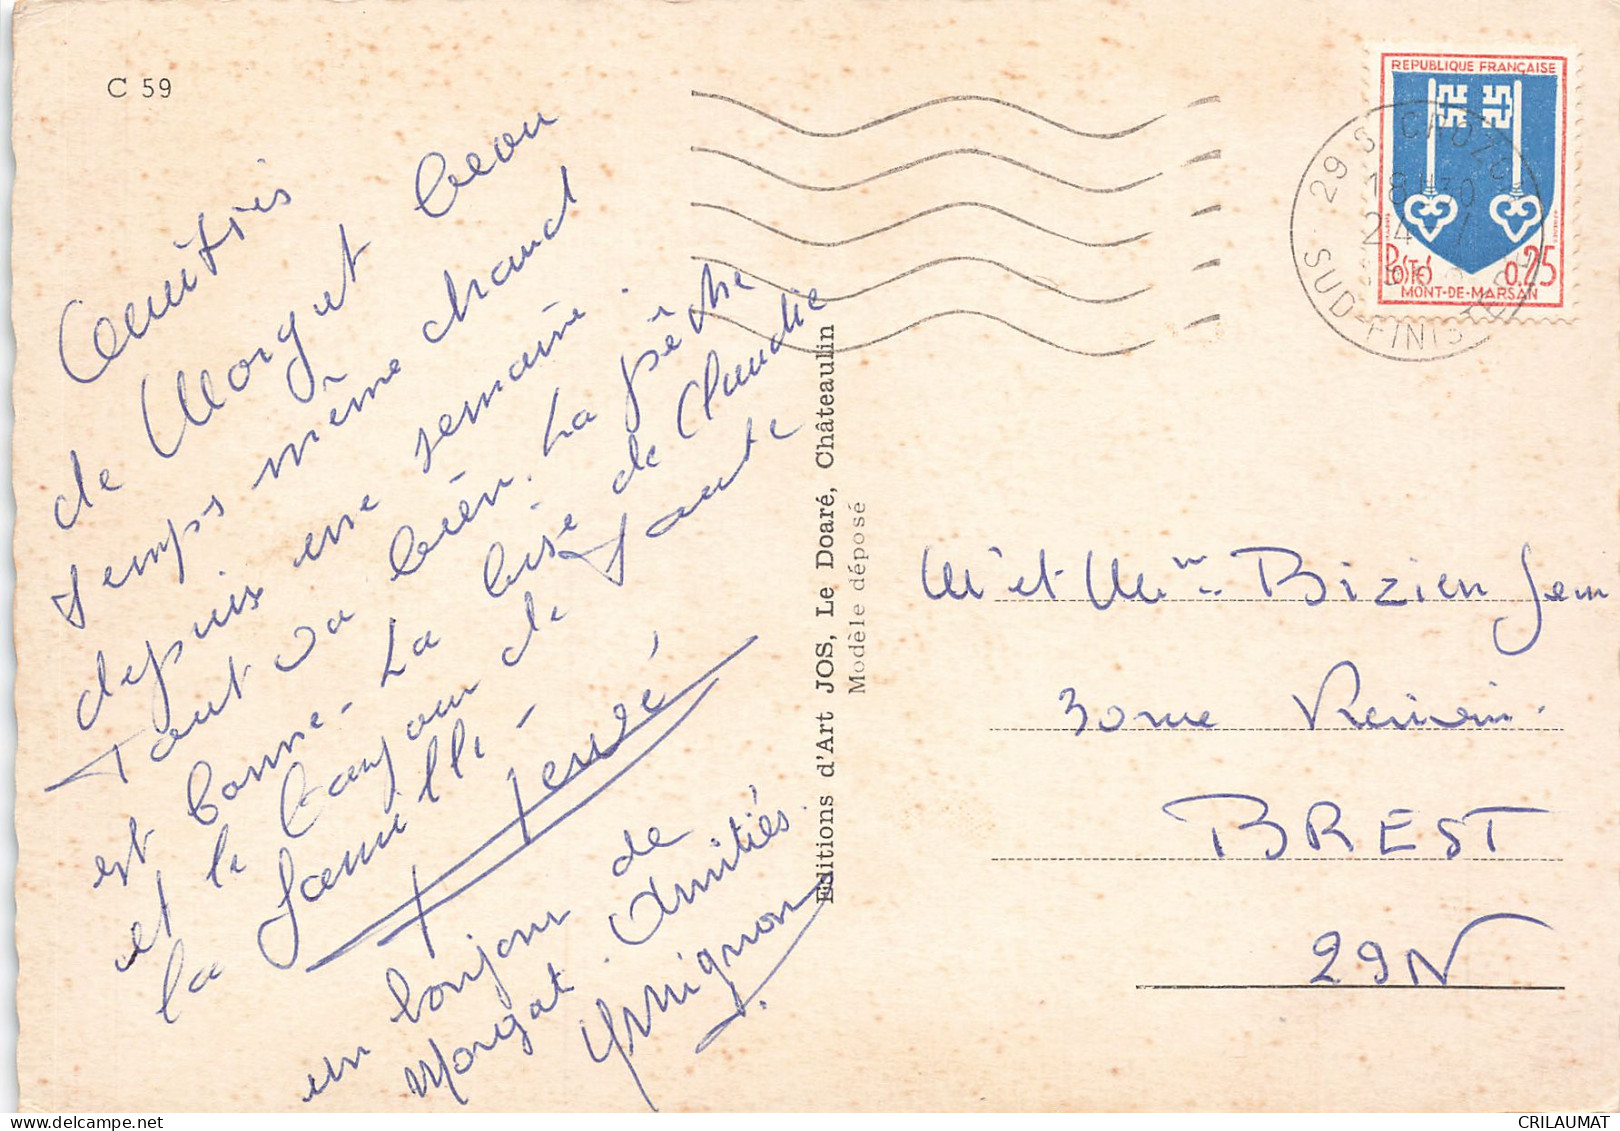 C 59
Amitiés
de Morgat beau
temps même chaud
depuis une semaine.
Tout va bien. La pêche
est bonne - La bise de Claudie
et le bonjour de toute
la famille -
Hervé
un bonjour de
Morgat. Amitiés.
Mignon
Editions d'Art JOS, Le Doaré, Châteaulin
Modèle déposé
REPUBLIQUE FRANÇAISE
POSTES 0.25
MONT-DE-MARSAN
29 S CROZON
18H30
24
SUD-FINISTERE
Mr et Mme Bizien Jean
30 rue
BREST
29N
CRILAUMAT